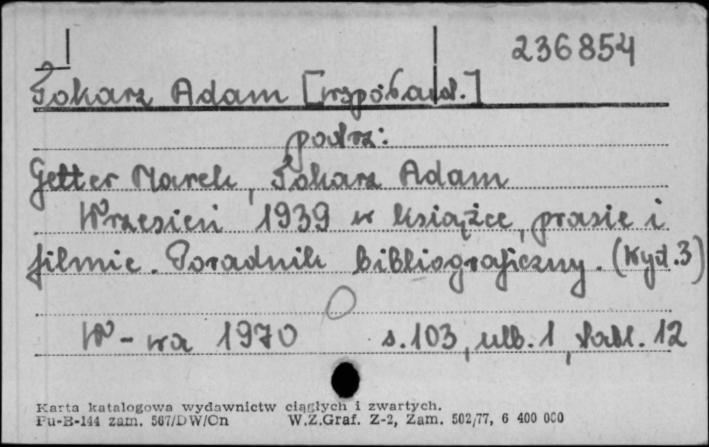 236854
Tokarz Adam [współaut.]
podrz:
Getter Marek, Tokarz Adam
Wrzesień 1939 w książce, prasie i
filmie. Poradnik bibliograficzny. (Wyd. 3)
W-wa 1970 s. 103, nlb. 1, tabl. 12
Karta katalogowa wydawnictw ciągłych i zwartych.
Pu-B-144 zam. 567/DW/Cn W.Z.Graf. Z-2, Zam. 502/77, 6 400 000